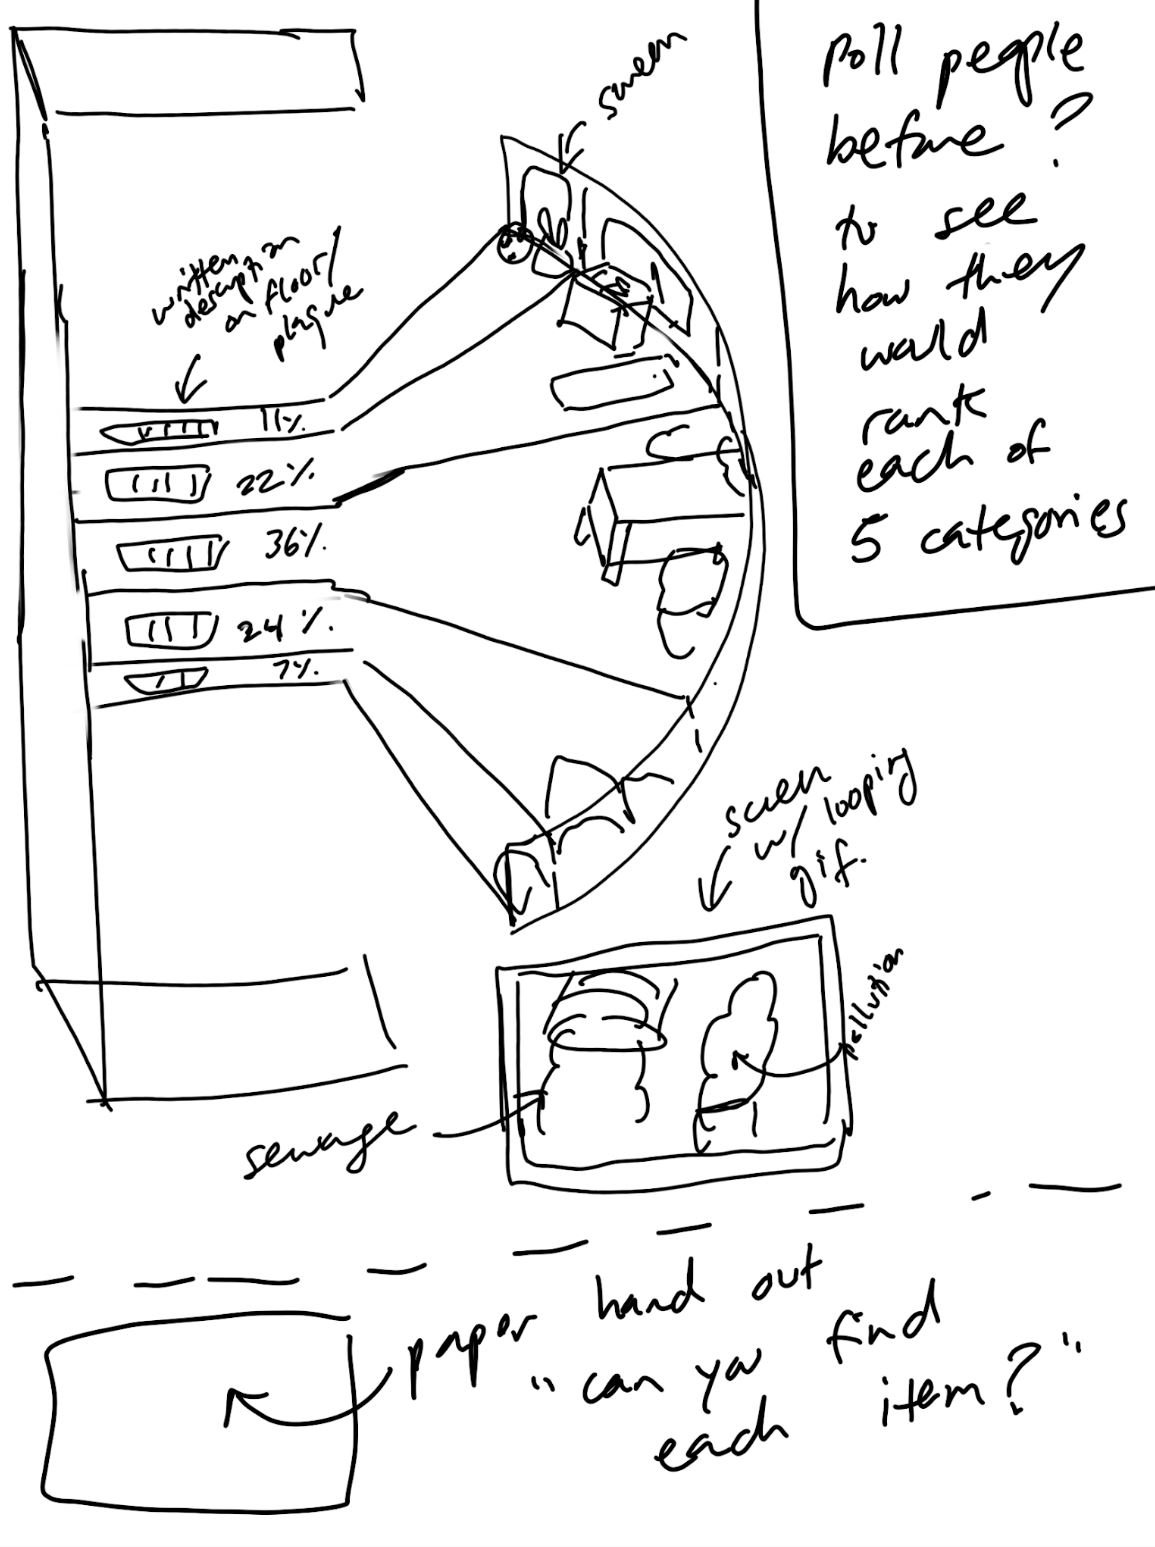 screen
Poll people
before?
to see
how they
would
rank
each of
5 categories
written
description
on floor/
plaque
11%
22%
36%
24%
7%
screen
w/ looping
gif.
pollution
sewage
paper hand out
"can you find
each item?"